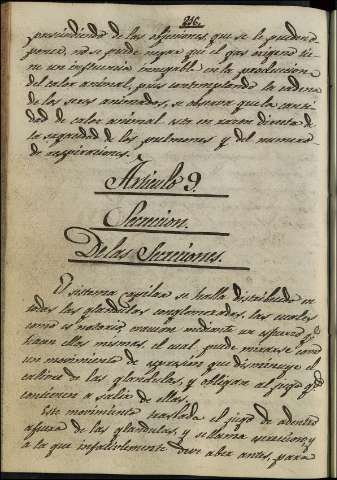 216.
prescindiendo de las objeciones que se le pueden
poner, no se puede negar que el gas oxigeno tie-
ne un influencia innegable en la produccion
del calor animal, pues contemplando la cadena
de los seres animados, se observa que la canti-
dad de calor animal esta en razon directa de
la capacidad de los pulmones y del numero
de respiraciones.
Articulo 9.
Secrecion.
De las Secreciones.
El sistema capilar se halla distribuido en
todas las glandulas conglomeradas, las cuales
como es notorio mediante un esfuerzo qe
hacen ellas mismas, el cual puede mirarse como
un movimiento de expresion que disminuye el
calibre de las glandulas, y obligan al jugo qe
contienen a salir de ellas.
Este movimiento traslada el jugo de adentro
afuera de las glandulas, y se llama secrecion, y
a la que infaliblemente deve aber antes, para